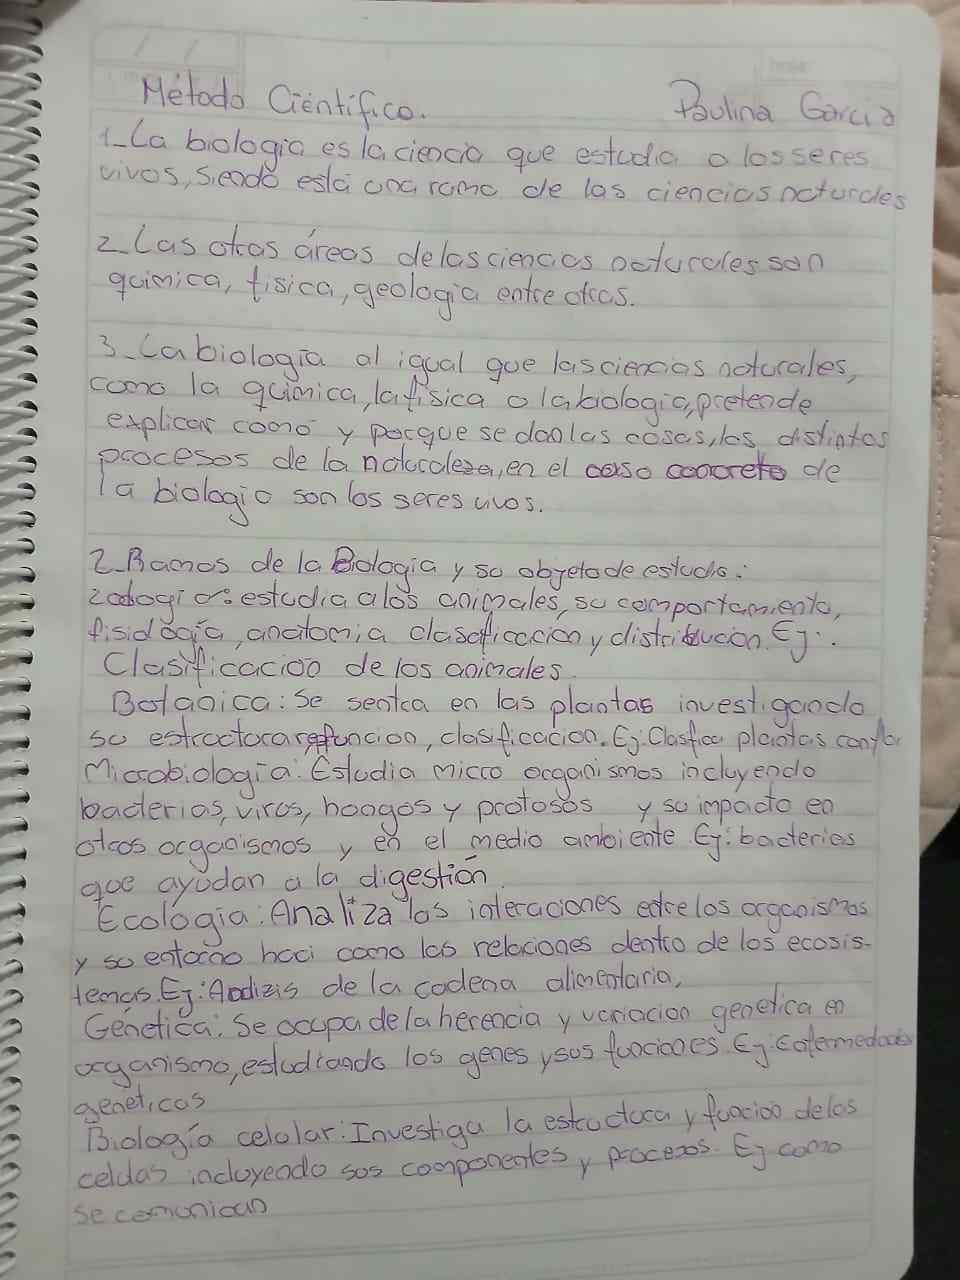 Método Científico. Paulina Garcia
1_La biología es la ciencia que estudia a los seres
vivos, siendo está una rama de las ciencias naturales
2_Las otras áreas de las ciencias naturales son
quimica, fisica, geologia entre otras.
3_La biología al igual que las ciencias naturales,
como la química, la fisica o la biologia, pretende
explicar como y porque se dan las cosas, los distintos
procesos de la naturaleza, en el caso concreto de
la biologia son los seres vivos.
2_Ramas de la Biologia y su objeto de estudio:
zoologia: estudia a los animales, su comportamiento,
fisiología, anatomia clasificacion y distribucion. Ej:.
Clasificacion de los animales.
Botanica: Se sentra en las plantas investigando
su estructura, funcion, clasificacion. Ej: Clasfica plantas con flor
Microbiología: Estudia micro organismos incluyendo
bacterias, virus, hongos y protosos y su impacto en
otros organismos y en el medio ambiente Ej: bacterias
que ayudan a la digestión.
Ecologia: Analiza las interaciones entre los organismos
y su entorno haci como las relaciones dentro de los ecosis-
temas. Ej: Analizis de la cadena alimentaria,
Genética: Se ocupa de la herencia y variacion genetica en
organismo, estudiando los genes y sus funciones. Ej: Enfermedades
geneticas
Biología celular: Investiga la estructura y funcion de las
celdas incluyendo sos componentes y procesos. Ej como
se comunican